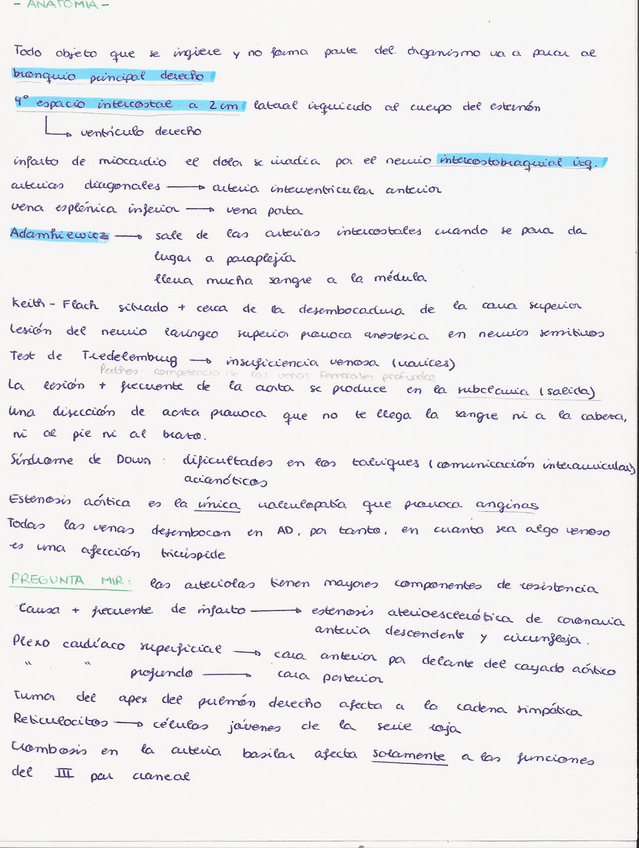 - ANATOMÍA -
Todo objeto que se ingiere y no forma parte del organismo va a parar al
bronquio principal derecho
4º espacio intercostal a 2 cm lateral izquierdo al cuerpo del esternón
ventrículo derecho
infarto de miocardio el dolor se irradia por el nervio intercostobraquial izq.
arterias diagonales → arteria interventricular anterior
vena esplénica inferior → vena porta
Adamkiewicz → sale de las arterias intercostales cuando se para da
lugar a paraplejía
lleva mucha sangre a la médula
Keith - Flach situado + cerca de la desembocadura de la cava superior
Lesión del nervio laríngeo superior provoca anestesia en nervios sensitivos
Test de Tredelemburg → insuficiencia venosa (varices)
Perthes: competencia de las venas femorales profundas
La lesión + frecuente de la aorta se produce en la subclavia (salida)
Una disección de aorta provoca que no te llega la sangre ni a la cabeza,
ni al pie ni al brazo.
Síndrome de Down: dificultades en los tabiques (comunicación interauricular)
acianóticos
Estenosis aórtica es la única valvulopatía que provoca anginas
Todas las venas desembocan en AD, por tanto, en cuanto sea algo venoso
es una afección tricúspide
PREGUNTA MIR: las arteriolas tienen mayores componentes de resistencia
Causa + frecuente de infarto → estenosis aterioesclerótica de coronaria
anteria descendente y circunfleja.
Plexo cardíaco superficial → cara anterior por delante del cayado aórtico
" " profundo → cara posterior
Tumor del apex del pulmón derecho afecta a la cadena simpática
Reticulocitos → células jóvenes de la serie roja
Trombosis en la arteria basilar afecta solamente a las funciones
del III par craneal